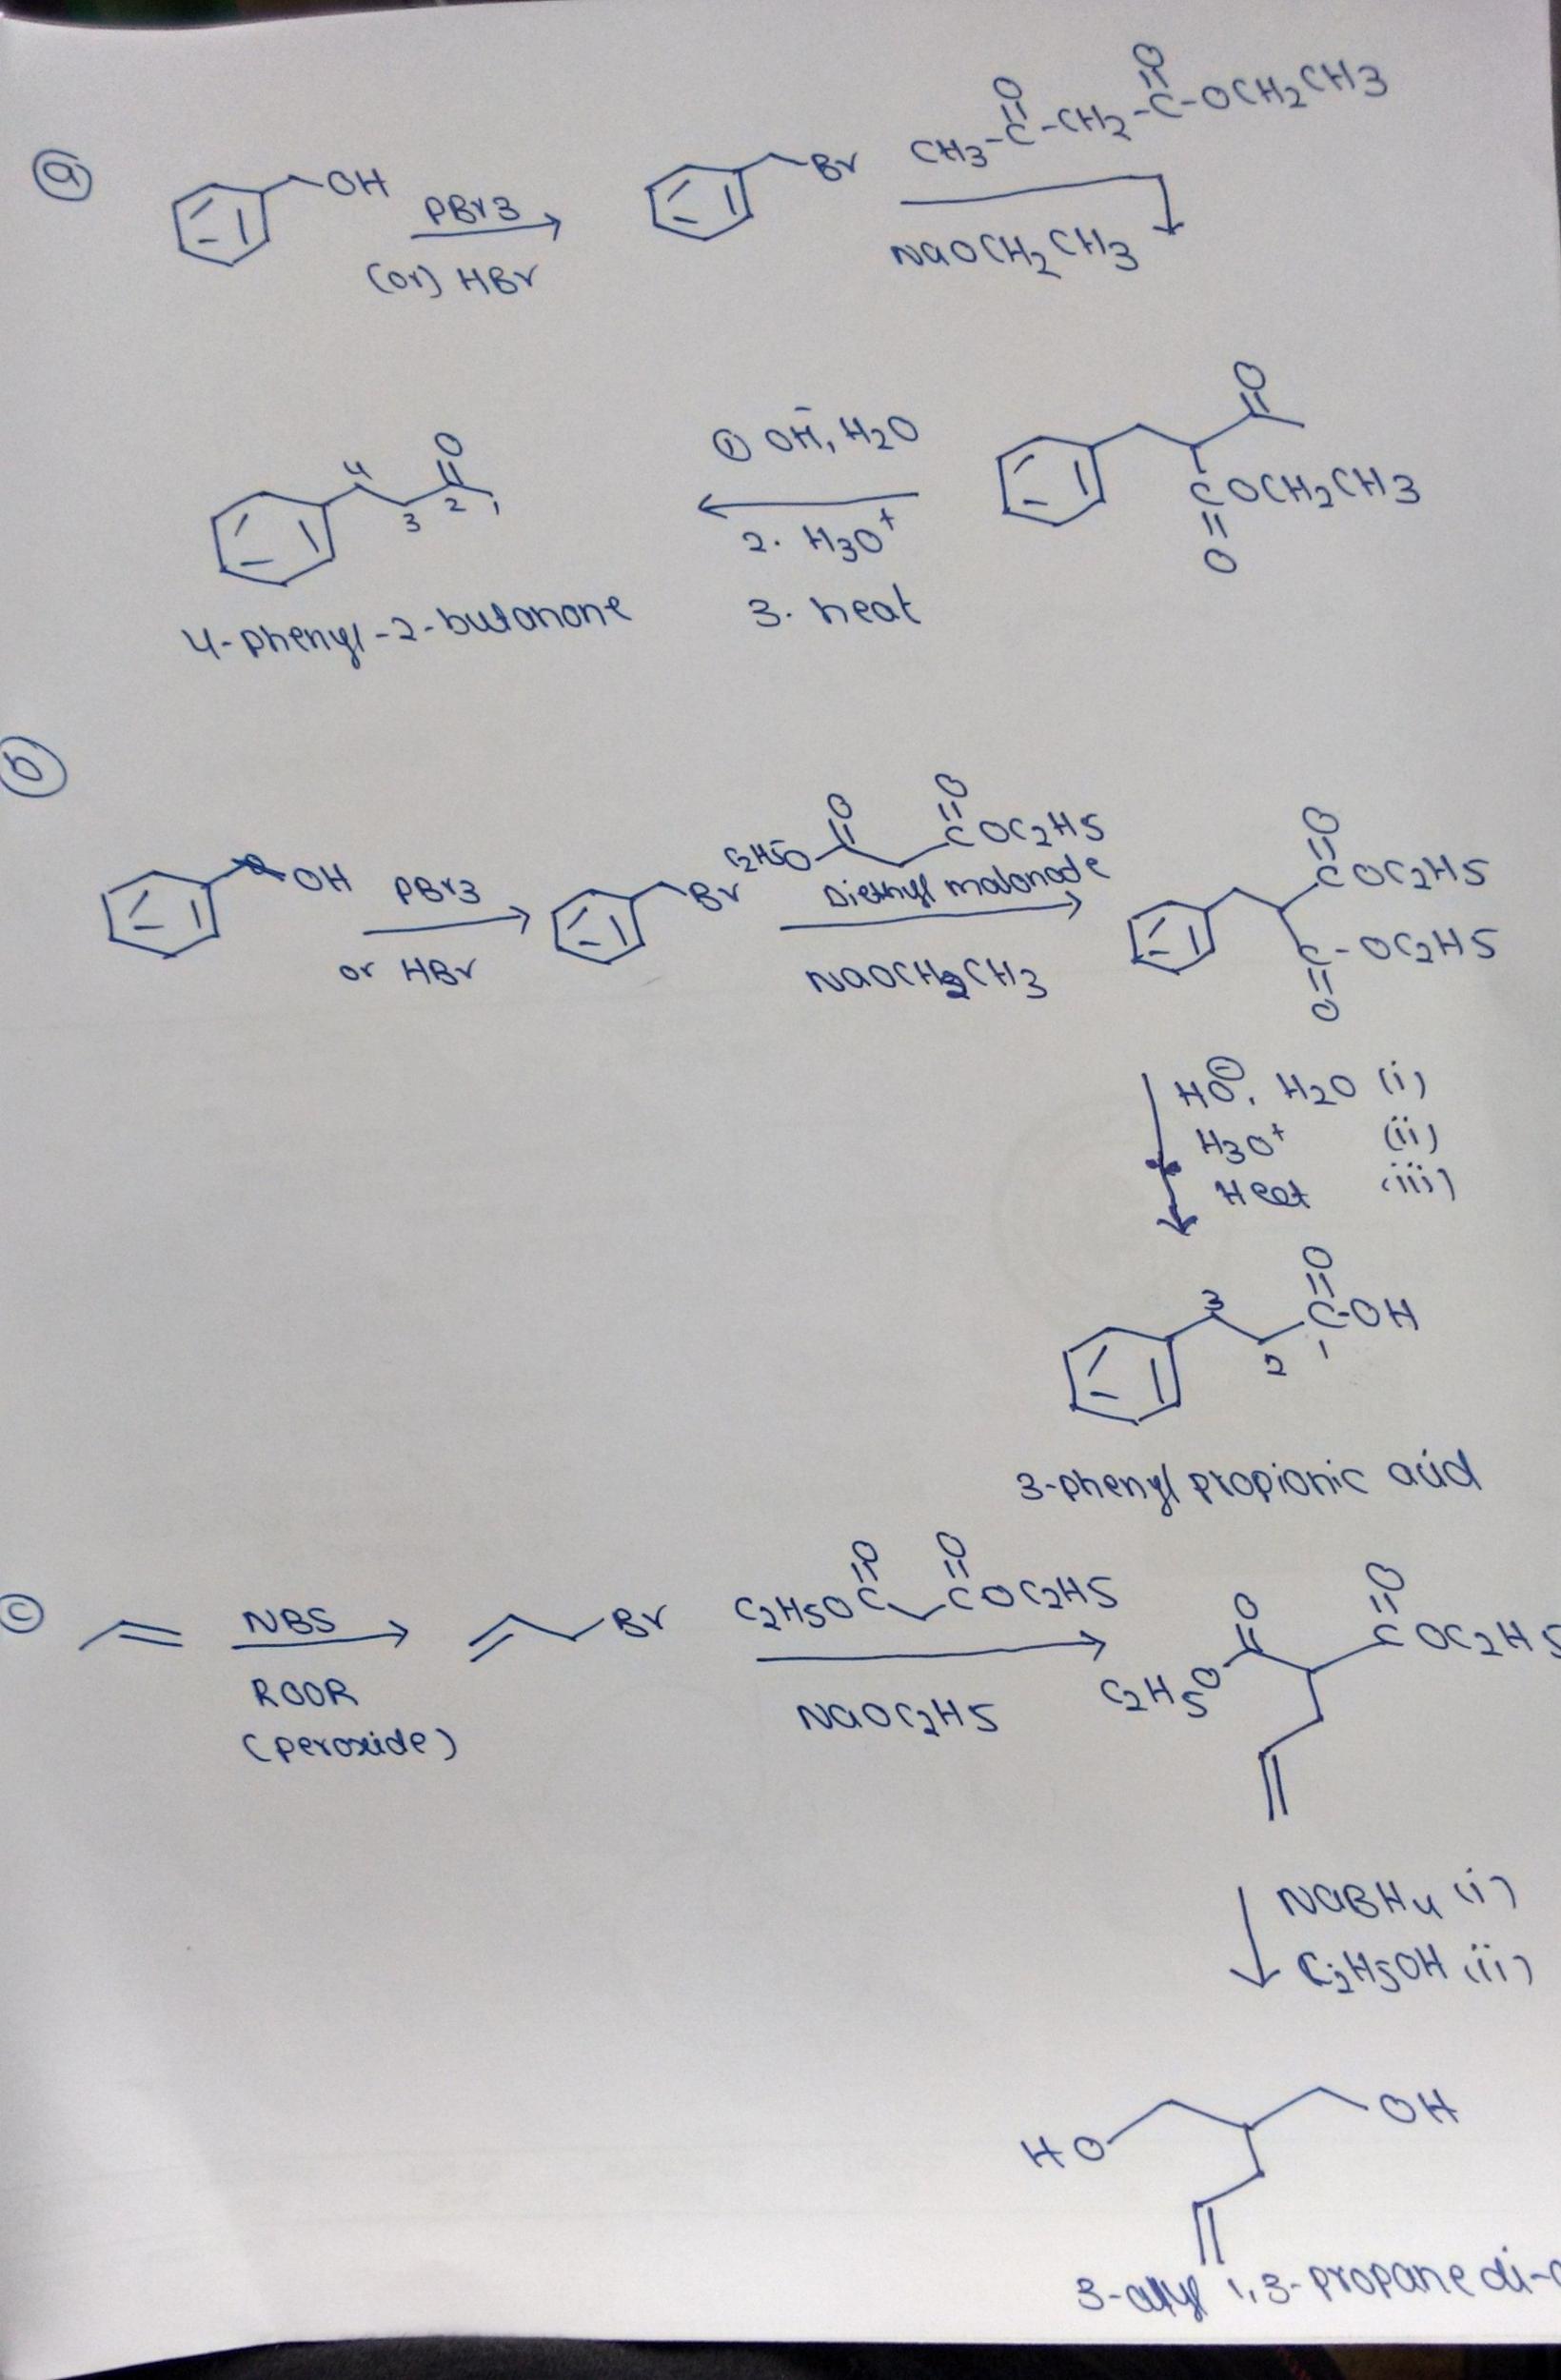 (a)
OH
PBr3
(or) HBr
Br
CH3-C-CH2-C-OCH2CH3
O
O
NaOCH2CH3
O
COCH2CH3
O
① OH⁻, H2O
2. H3O⁺
3. heat
O
4
3
2
1
4-phenyl-2-butanone
(b)
OH
PBr3
or HBr
Br
C2H5O
O
O
COC2H5
Diethyl malonade
NaOCH2CH3
O
COC2H5
C-OC2H5
O
HO⊖, H2O (i)
H3O⁺ (ii)
Heat (iii)
O
3
C-OH
2
1
3-phenyl propionic acid
(c)
NBS
ROOR
(peroxide)
Br
O
O
C2H5OC
COC2H5
NaOC2H5
O
O
COC2H5
C2H5O
NaBH4 (i)
C2H5OH (ii)
HO
OH
3-allyl 1,3-propane di-